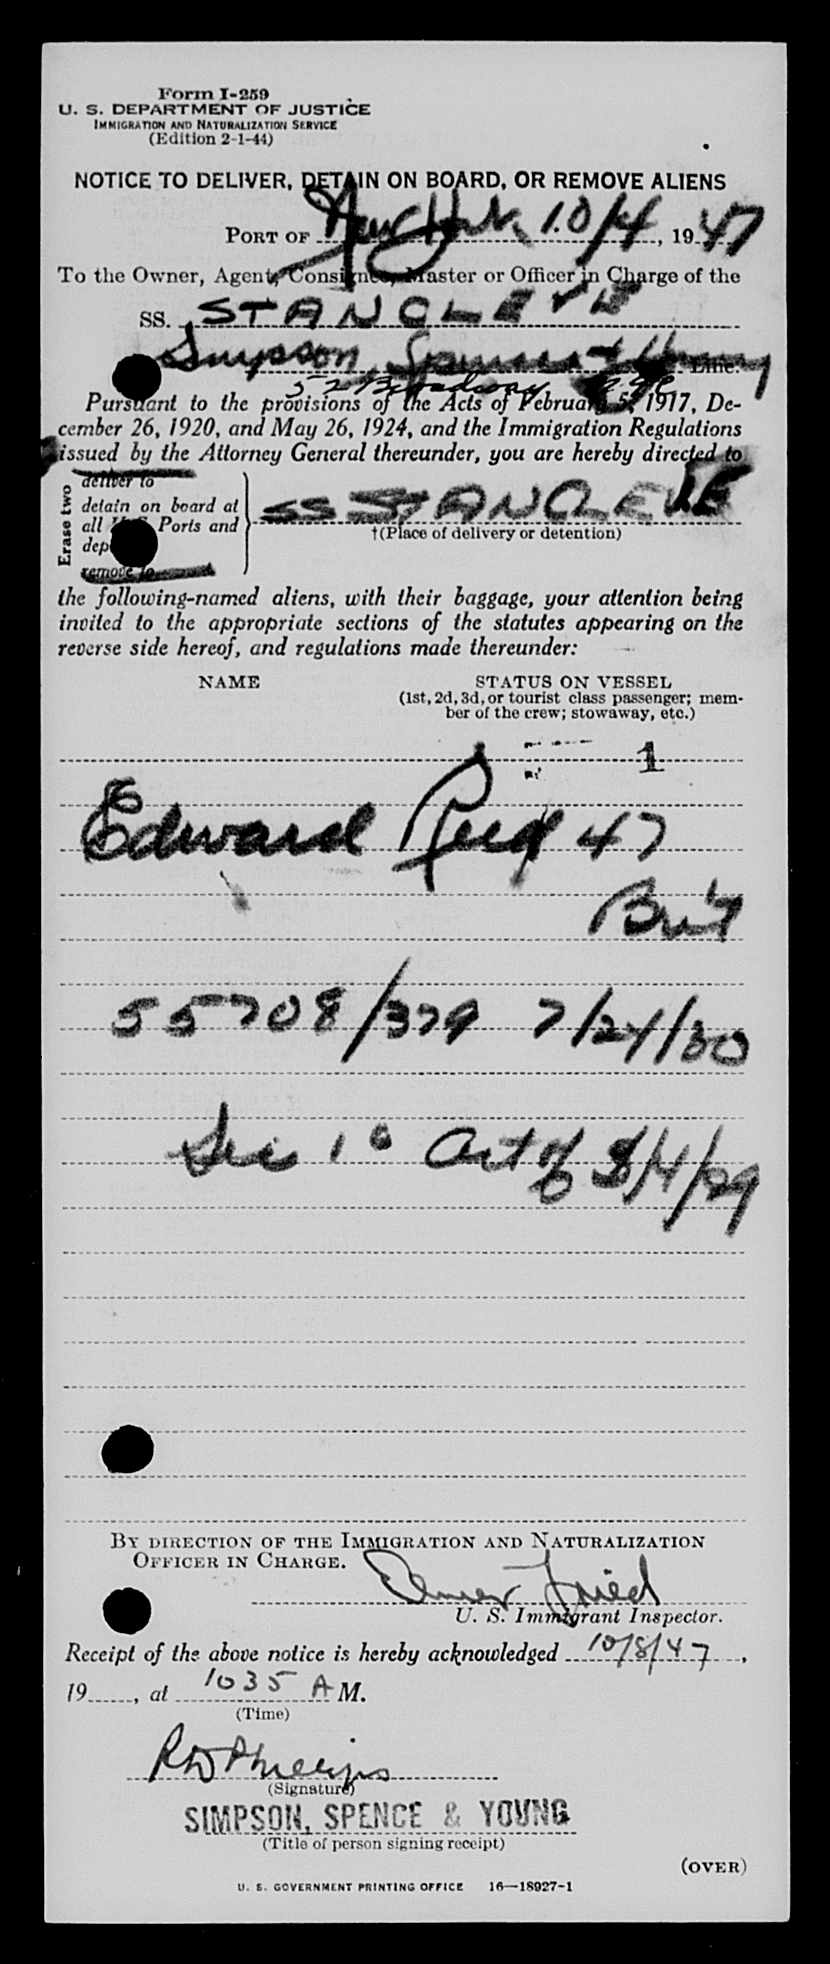 Form I-259
U. S. DEPARTMENT OF JUSTICE
IMMIGRATION AND NATURALIZATION SERVICE
(Edition 2-1-44)
NOTICE TO DELIVER, DETAIN ON BOARD, OR REMOVE ALIENS
PORT OF New York, 10/4, 1947
To the Owner, Agent, Consignee, Master or Officer in Charge of the
SS. STANCLEVE
Simpson, Spence & Young Line.
52 Broadway
Pursuant to the provisions of the Acts of February 5, 1917, De-
cember 26, 1920, and May 26, 1924, and the Immigration Regulations
issued by the Attorney General thereunder, you are hereby directed to
Erase two
deliver to
detain on board at
all U.S. Ports and
remove to
SS STANCLEVE
†(Place of delivery or detention)
the following-named aliens, with their baggage, your attention being
invited to the appropriate sections of the statutes appearing on the
reverse side hereof, and regulations made thereunder:
NAME STATUS ON VESSEL
(1st, 2d, 3d, or tourist class passenger; mem-
ber of the crew; stowaway, etc.)
1
Edward Reid 47
Brit
55708/379 7/24/30
Sec 1a Act of 3/4/29
BY DIRECTION OF THE IMMIGRATION AND NATURALIZATION
OFFICER IN CHARGE.
Elmer Fried
U. S. Immigrant Inspector.
Receipt of the above notice is hereby acknowledged 10/8/47,
19......, at 1035 A M.
(Time)
RW Phillips
(Signature)
SIMPSON, SPENCE & YOUNG
(Title of person signing receipt)
(OVER)
U. S. GOVERNMENT PRINTING OFFICE 16—18927-1